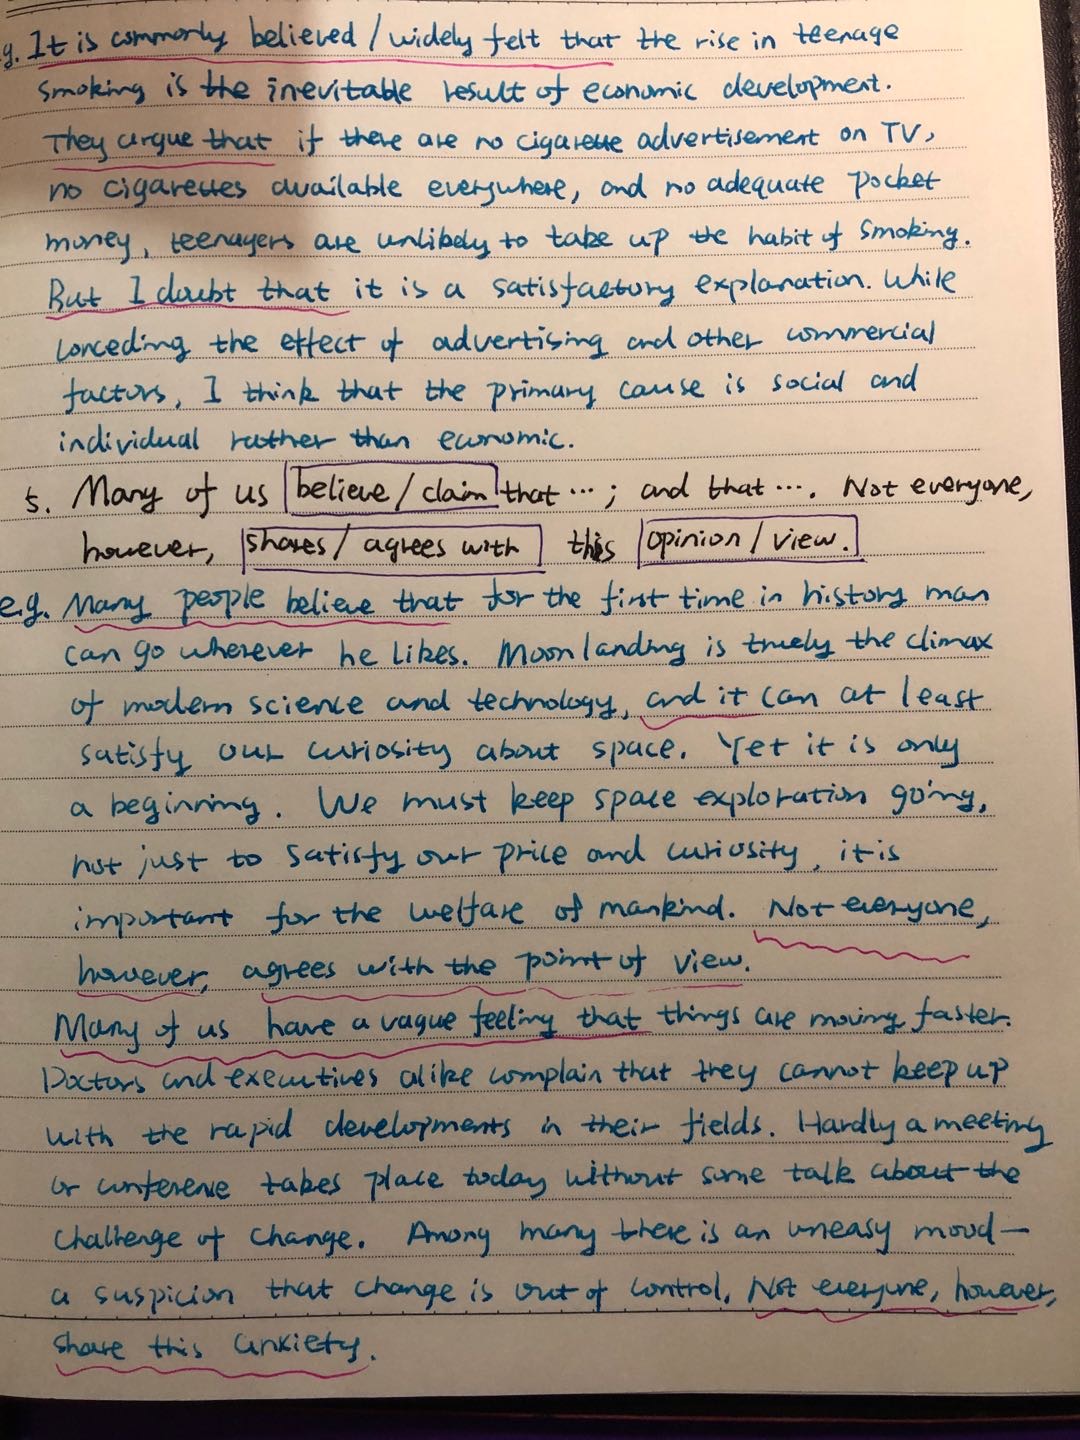 .g. It is commonly believed / widely felt that the rise in teenage
smoking is the inevitable result of economic development.
They argue that if there are no cigarette advertisement on TV,
no cigarettes available everywhere, and no adequate pocket
money, teenagers are unlikely to take up the habit of smoking.
But I doubt that it is a satisfactory explanation. While
conceding the effect of advertising and other commercial
factors, I think that the primary cause is social and
individual rather than economic.
5. Many of us believe / claim that ...; and that .... Not everyone,
however, shares / agrees with this opinion / view.
e.g. Many people believe that for the first time in history man
can go wherever he likes. Moon landing is truely the climax
of modern science and technology, and it can at least
satisfy our curiosity about space. Yet it is only
a beginning. We must keep space exploration going,
not just to satisfy our price and curiosity, it is
important for the welfare of mankind. Not everyone,
however, agrees with the point of view.
Many of us have a vague feeling that things are moving faster.
Doctors and executives alike complain that they cannot keep up
with the rapid developments in their fields. Hardly a meeting
or conference takes place today without some talk about the
challenge of change. Among many there is an uneasy mood—
a suspicion that change is out of control. Not everyone, however,
share this anxiety.